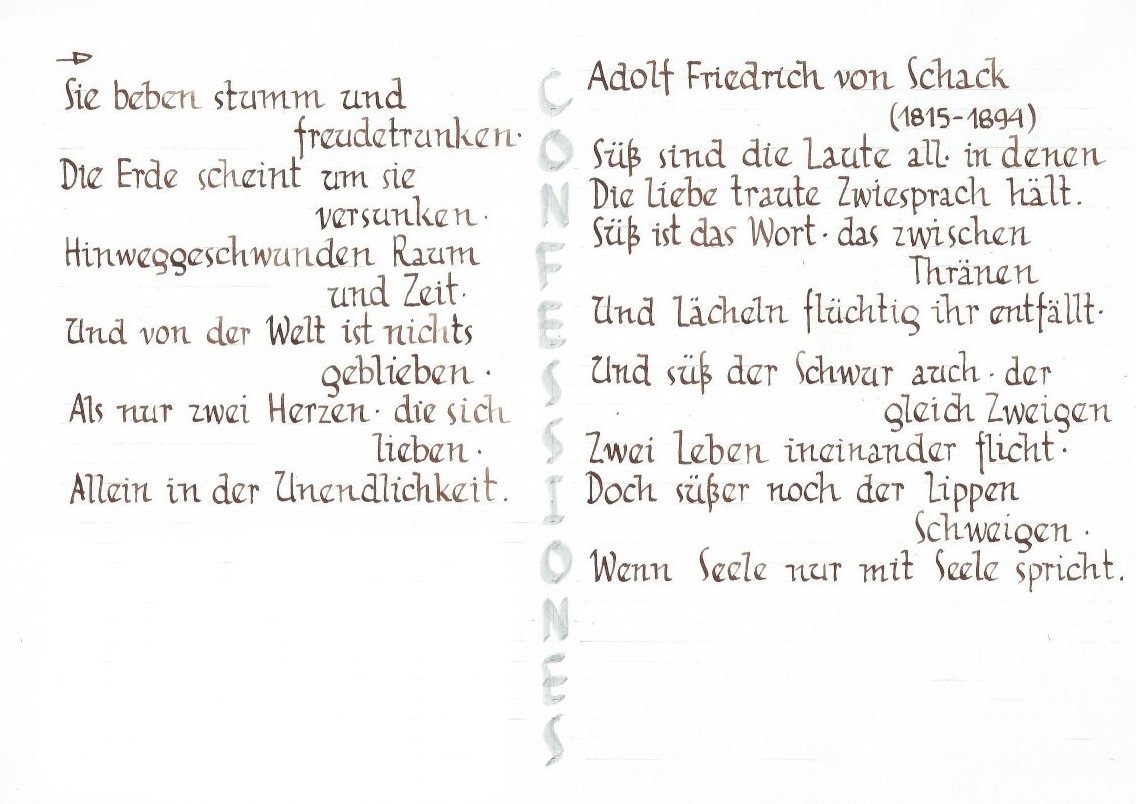 Sie beben stumm und
freudetrunken·
Die Erde scheint um sie
versunken·
Hinweggeschwunden Raum
und Zeit·
Und von der Welt ist nichts
geblieben·
Als nur zwei Herzen· die sich
lieben·
Allein in der Unendlichkeit.
CONFESSIONES
Adolf Friedrich von Schack
(1815-1894)
Süß sind die Laute all· in denen
Die Liebe traute Zwiesprach hält.
Süß ist das Wort· das zwischen
Thränen
Und Lächeln flüchtig ihr entfällt·
Und süß der Schwur auch· der
gleich Zweigen
Zwei Leben ineinander flicht·
Doch süßer noch der Lippen
Schweigen·
Wenn Seele nur mit Seele spricht.